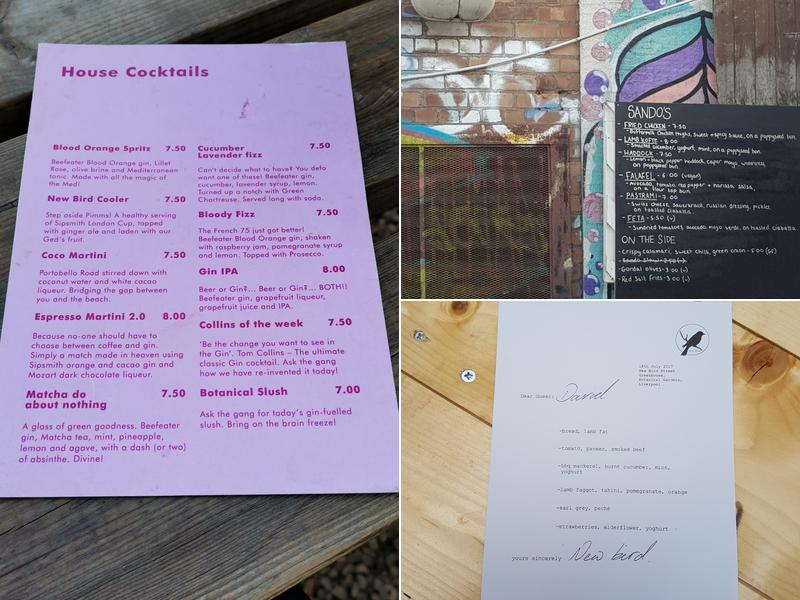 House Cocktails
Blood Orange Spritz 7.50
Beefeater Blood Orange gin, Lillet
Rose, olive brine and Mediterranean
tonic. Made with all the magic of
the Med!
New Bird Cooler 7.50
Step aside Pimms! A healthy serving
of Sipsmith London Cup, topped
with ginger ale and laden with our
Ged's fruit.
Coco Martini 7.50
Portobello Road stirred down with
coconut water and white cacao
liqueur. Bridging the gap between
you and the beach.
Espresso Martini 2.0 8.00
Because no-one should have to
choose between coffee and gin.
Simply a match made in heaven using
Sipsmith orange and cacao gin and
Mozart dark chocolate liqueur.
Matcha do
about nothing 7.50
A glass of green goodness. Beefeater
gin, Matcha tea, mint, pineapple,
lemon and agave, with a dash (or two)
of absinthe. Divine!
Cucumber
Lavender fizz 7.50
Can't decide what to have? You defo
want one of these! Beefeater gin,
cucumber, lavender syrup, lemon.
Turned up a notch with Green
Chartreuse. Served long with soda.
Bloody Fizz 7.50
The French 75 just got better!
Beefeater Blood Orange gin, shaken
with raspberry jam, pomegranate syrup
and lemon. Topped with Prosecco.
Gin IPA 8.00
Beer or Gin?... Beer or Gin?... BOTH!!
Beefeater gin, grapefruit liqueur,
grapefruit juice and IPA.
Collins of the week 7.50
'Be the change you want to see in
the Gin'. Tom Collins – The ultimate
classic Gin cocktail. Ask the gang
how we have re-invented it today!
Botanical Slush 7.00
Ask the gang for today's gin-fuelled
slush. Bring on the brain freeze!
SANDO'S
- FRIED CHICKEN - 7.50
- Buttermilk Chicken thighs, sweet + spicy sauce, on a poppyseed bun.
- LAMB KOFTE - 8.00
- Smacked cucumber, yoghurt, mint, on a poppyseed bun.
- HADDOCK - 7.50
- Lemon + black pepper haddock, caper mayo,
on poppyseed bun.
- FALAFEL - 6.00 (vegan)
- Avocado, tomato, red pepper + harissa salsa,
on a flour top bun.
- PASTRAMI - 7.00
- Swiss cheese, sauerkraut, russian dressing, pickles,
on toasted ciabatta.
- FETA - 6.50 (v)
- Sundried tomatoes, avocado, mojo verde, on toasted ciabatta.
ON THE SIDE
- Crispy calamari, sweet chilli, green onion - 5.00
- Gordal olives - 3.00 (v)
- Red Salt Fries - 3.00 (v)
18th July 2017
New Bird Street
Greenhouse,
Botanical Gardens,
Liverpool
Dear Guest: David
-bread, lamb fat
-tomato, paneer, smoked beef
-bbq mackerel, burnt cucumber, mint,
yoghurt
-lamb faggot, tahini, pomegranate, orange
-earl grey, peche
-strawberries, elderflower, yoghurt
yours sincerely New bird.